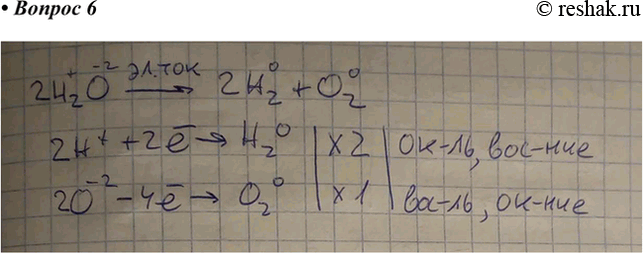 • Вопрос 6
© reshak.ru
2H₂⁺O⁻² эл.ток → 2H₂⁰ + O₂⁰
2H⁺ + 2ē → H₂⁰ | x2 | ок-ль, вос-ние
2O⁻² - 4ē → O₂⁰ | x1 | вс-ль, ок-ние